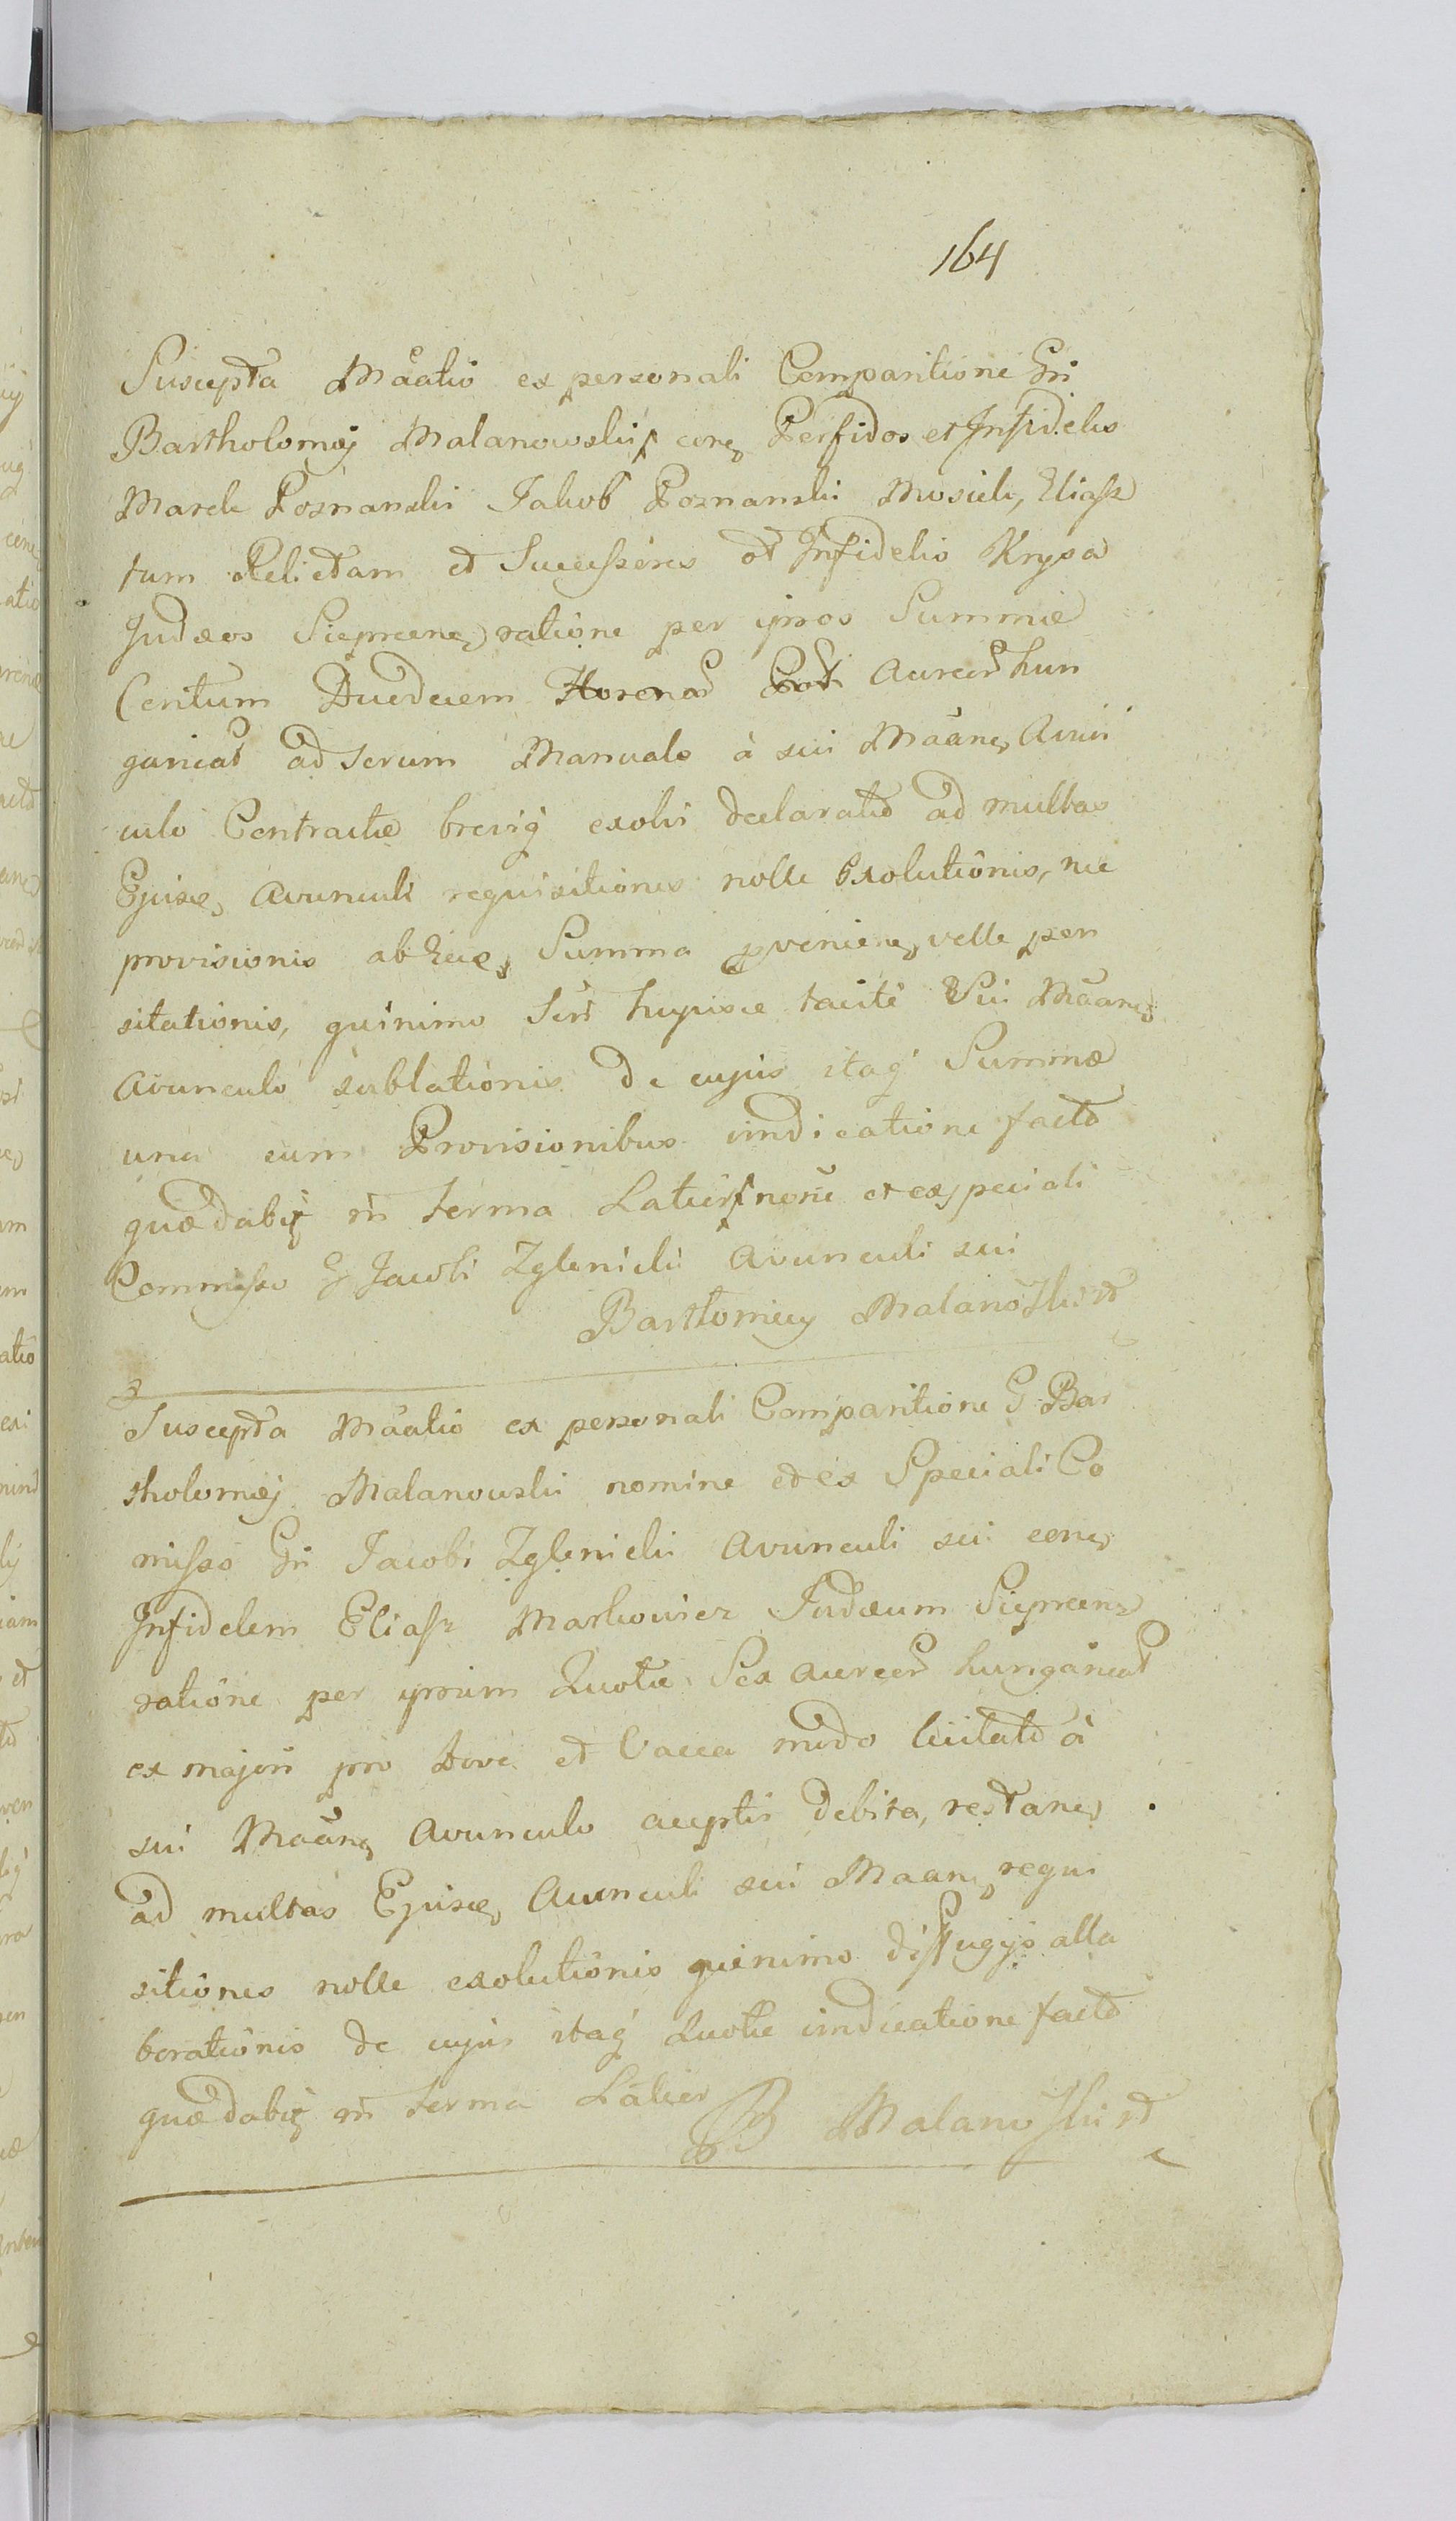 164
Suscepta Maãtio ex personali Comparitione Gñi
Bartholomæj Malanowski, con Perfidos et Infideles
Marek Poznanski Jakob Poznanski Mosiek, Eliasz
tum Relictam et Successores ol Infidelis Krysa
Judæos Sieprcen ratione per ipsos Summæ
Centum Duodecem Aureor hun
garical ad serum Manuale à sui Maãn Avun
culo Contractæ brevig exolvi declaratæ ad multas
Ejusce Avunculi requisitiones nolle Exolutionis, nec
provisionis ab Ejusce Summa provenien velle pen
sitationis, quinimo tacitè Sui Maãn
Avunculo sublationis De cujus itaq Summæ
una cum Provisionibus vindicatione facta
quædabit m̃ forma Latior, noie et ex speciali
Commisso G Jacobi Zglenicki Avunculi sui
Bartłomiey Malanoski
Suscepta Maãtio ex personali Comparitione G Bar
tholomæj Malanowski nomine et ex Speciali Co
misso Gñi Jacobi Zglenicki Avunculi sui con
Infidelem Eliasz Markowicz Judæum Sieprcen
ratione per ipsum Quotæ Sex aureor hungarical
ex majori pro bove et Vacca modo licitato à
sui Maãn Avunculo acceptis debita, restan
ad multas Ejusce Avunculi sui Maan requi
sitiones nolle exolutionis quinimo diffugijs alla
borationis de cujus itaq Quotæ vindicatione facta
quædabit m̃ forma Latior
B Malanoski